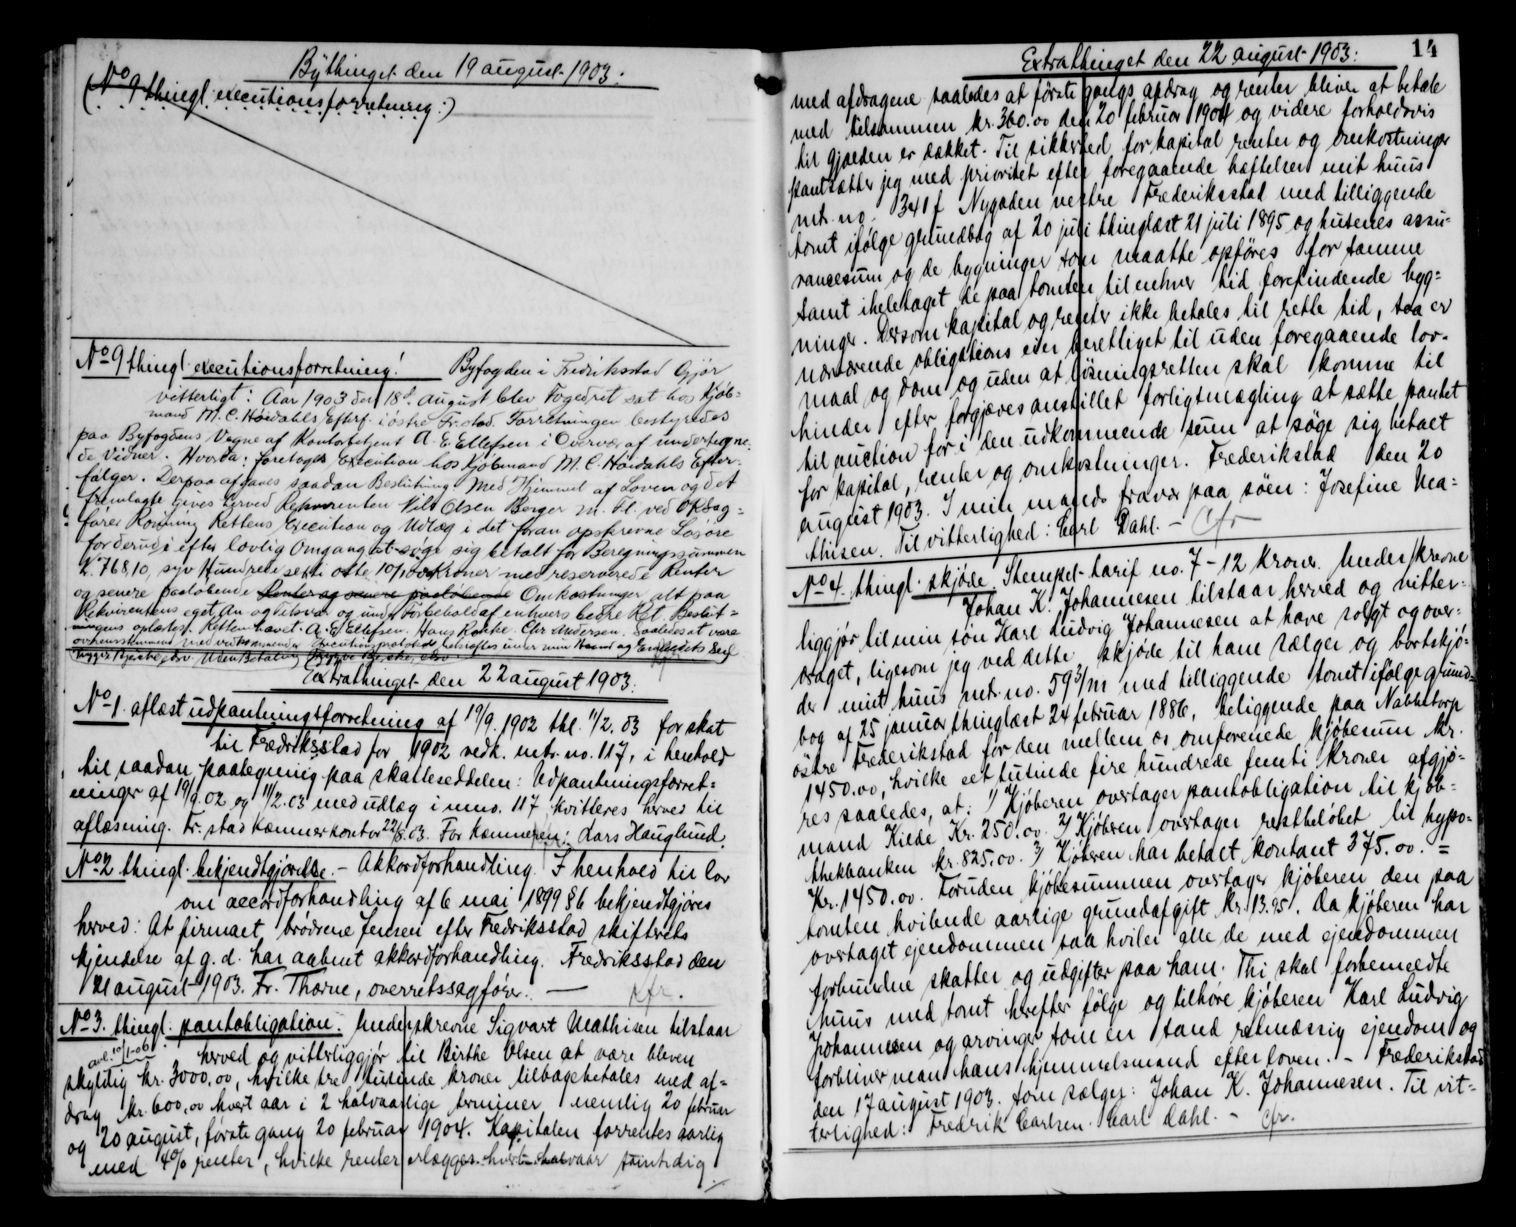 Bythinget den 19 august 1903.
(No 9 thingl. executionsforretning:)
No 9 thingl. executionsforretning! Byfogden i Fredriksstad Gjør
vitterligt: Aar 1903 den 18de August blev Fogedret sat hos Kjøb=
mand M. C. Høidahls Efterf. i østre Fr.stad. Forretningen bestyredes
paa Byfogdens Vegne af Kontorbetjent A. E. Ellefsen i Overvær af undertegne=
de Vidner. Hvorda: foretoges Execution hos Kjøbmand M. C. Høidahls Efter=
følger. Derpaa afgaves saadan Beslutning Med Hjemmel af Loven og det
fremlagte gives herved Rekvirenten Nils Olsen Berger m. Fl. ved O.R.Sag=
fører Rettens Execution og Udlæg i det foran opskrevne Løsøre
for derudi efter lovlig Omgang at søge sig betalt for Beregningssummen
K. 768,10, syv Hundrede seksti otte 10/100 Kroner med reserverede Renter
og senere paaløbende Renter og senere paaløbende Omkostninger alt paa
Rekvirentens eget An og Tilsvar og under Forbehold af enhvers bedre Ret. Beslut=
ningens oplæstes. Retten hævet. A. E. Ellefsen. Hans Chr. Andersen. Saaledes at være
overensstemmende med vedkommende Executionsprotokol bekræftes under min Haand og Embedets Segl
Uden Betaling
Extrathinget den 22 august 1903.
No 1. aflæst udpantningsforretning af 19/9. 1902 thl. 11/2. 03 for skat
til Fredriksstad for 1902 vedk. mtr. no. 117, i henhold
til saadan paategning paa skatteseddelen: Udpantningsforret=
ninger af 19/9. 02 og 11/2. 03 med udlæg i mno. 117 kvitteres herved til
aflæsning. Fr.stad Kæmnerkontor 22/8. 03. For Kæmneren: Lars Hauglund.
No 2 thingl. bekjendtgjørelse. - Akkordforhandling. I henhold til lov
om accordforhandling af 6 mai 1899 § 6 bekjendtgjøres
herved: At firmaet brødrene Jensen efter Fredriksstad skifterets
kjendelse af g. d. har aabnet akkordforhandling. Fredriksstad den
21 august 1903. Fr. Thorne, overretssagfører. - cfr.
No 3. thingl. pantobligation. Underskrevne Sigvart Mathisen tilstaar
avl. 10/1-06
herved og vitterliggjør til Birthe Olsen at være bleven
skyldig kr. 3000,00, hvilke tre tusinde kroner tilbagebetales med af=
drag kr. 600,00 hvert aar i 2 halvaarlige terminer nemlig 20 februar
og 20 august, første gang 20 februar 1904. Kapitalen forrentes aarlig
med 4% renter, hvilke renter erlægges hvert halvaar samtidig
Extrathinget den 22 august 1903. 14
med afdragene saaledes at første gangs afdrag og renter bliver at betale
med tilsammen kr. 360.00 den 20 februar 1904 og videre forholdsvis
til gjælden er dækket. Til sikkerhed for kapital renter og omkostninger
pantsætter jeg med prioritet efter foregaaende hæftelser mit huus
mtr. no. 341 f Nygaden vestre Frederikstad med tilliggende
tomt ifølge grundbog af 20 juli thinglæst 21 juli 1895 og husenes assu=
rancesum og de bygninger som maatte opføres for samme
samt iheletaget de paa tomten til enhver tid forefindende byg=
ninger. Dersom kapital og renter ikke betales til rette tid, saa er
nærværende obligations eier berettiget til uden foregaaende lov=
maal og dom og uden at løsningsretten skal komme til
hinder efter forgjæves anstillet forligsmægling at sætte pantet
til auction for i den udkommende sum at søge sig betalt
for kapital, renter og omkostninger. Frederikstad den 20
august 1903. I min mands fravær paa søen: Josefine Ma=
thisen. Til vitterlighed: Carl Dahl. - Cfr
No 4. thingl. skjøde. Stempel-tarif no. 7 - 12 kroner. Underskrevne
Johan K. Johannesen tilstaar herved og vitter=
liggjør til min søn Karl Ludvig Johannesen at have solgt og over=
draget, ligesom jeg ved dette skjøde til ham sælger og bortskjø=
der mit huus mtr. no. 593/m med tilliggende tomt ifølge grund=
bog af 25 januar, thinglæst 24 februar 1886, beliggende paa Nabbetorp
østre Frederikstad for den mellem os omforenede kjøbesum kr.
1450.00, hvilke eet tusinde fire hundrede femti kroner afgjø=
res saaledes, at: 1) Kjøberen overtager pantobligation til kjøb=
mand Kilde Kr. 250.00. 2) Kjøberen overtager restbeløbet til hypo=
thekbanken kr. 825.00. 3) Kjøberen har betalt kontant 375.00. =
Kr. 1450.00. Foruden kjøbesummen overtager kjøberen den paa
tomten hvilende aarlige grundafgift kr. 13.95. Da kjøberen har
overtaget ejendommen saa hviler alle de med ejendommen
forbundne skatter og udgifter paa ham. Thi skal forbemeldte
huus med tomt herefter følge og tilhøre kjøberen Karl Ludvig
Johannesen og arvinger som en sand retmæssig ejendom og
forbliver man hans hjemmelsmand efter loven. - Frederikstad
den 17 august 1903. som sælger: Johan K. Johannesen. Til vit=
terlighed: Fredrik Carlsen. Carl Dahl. - cfr.